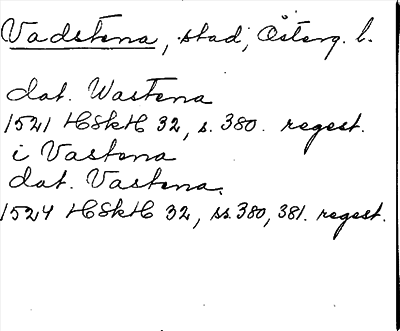 Vadstena, stad, Österg. l.
dat. Wastena
1521 HSkH 32, s. 380. regest.
i Vastena
dat. Vastena.
1524 HSkH 32, ss. 380, 381. regest.